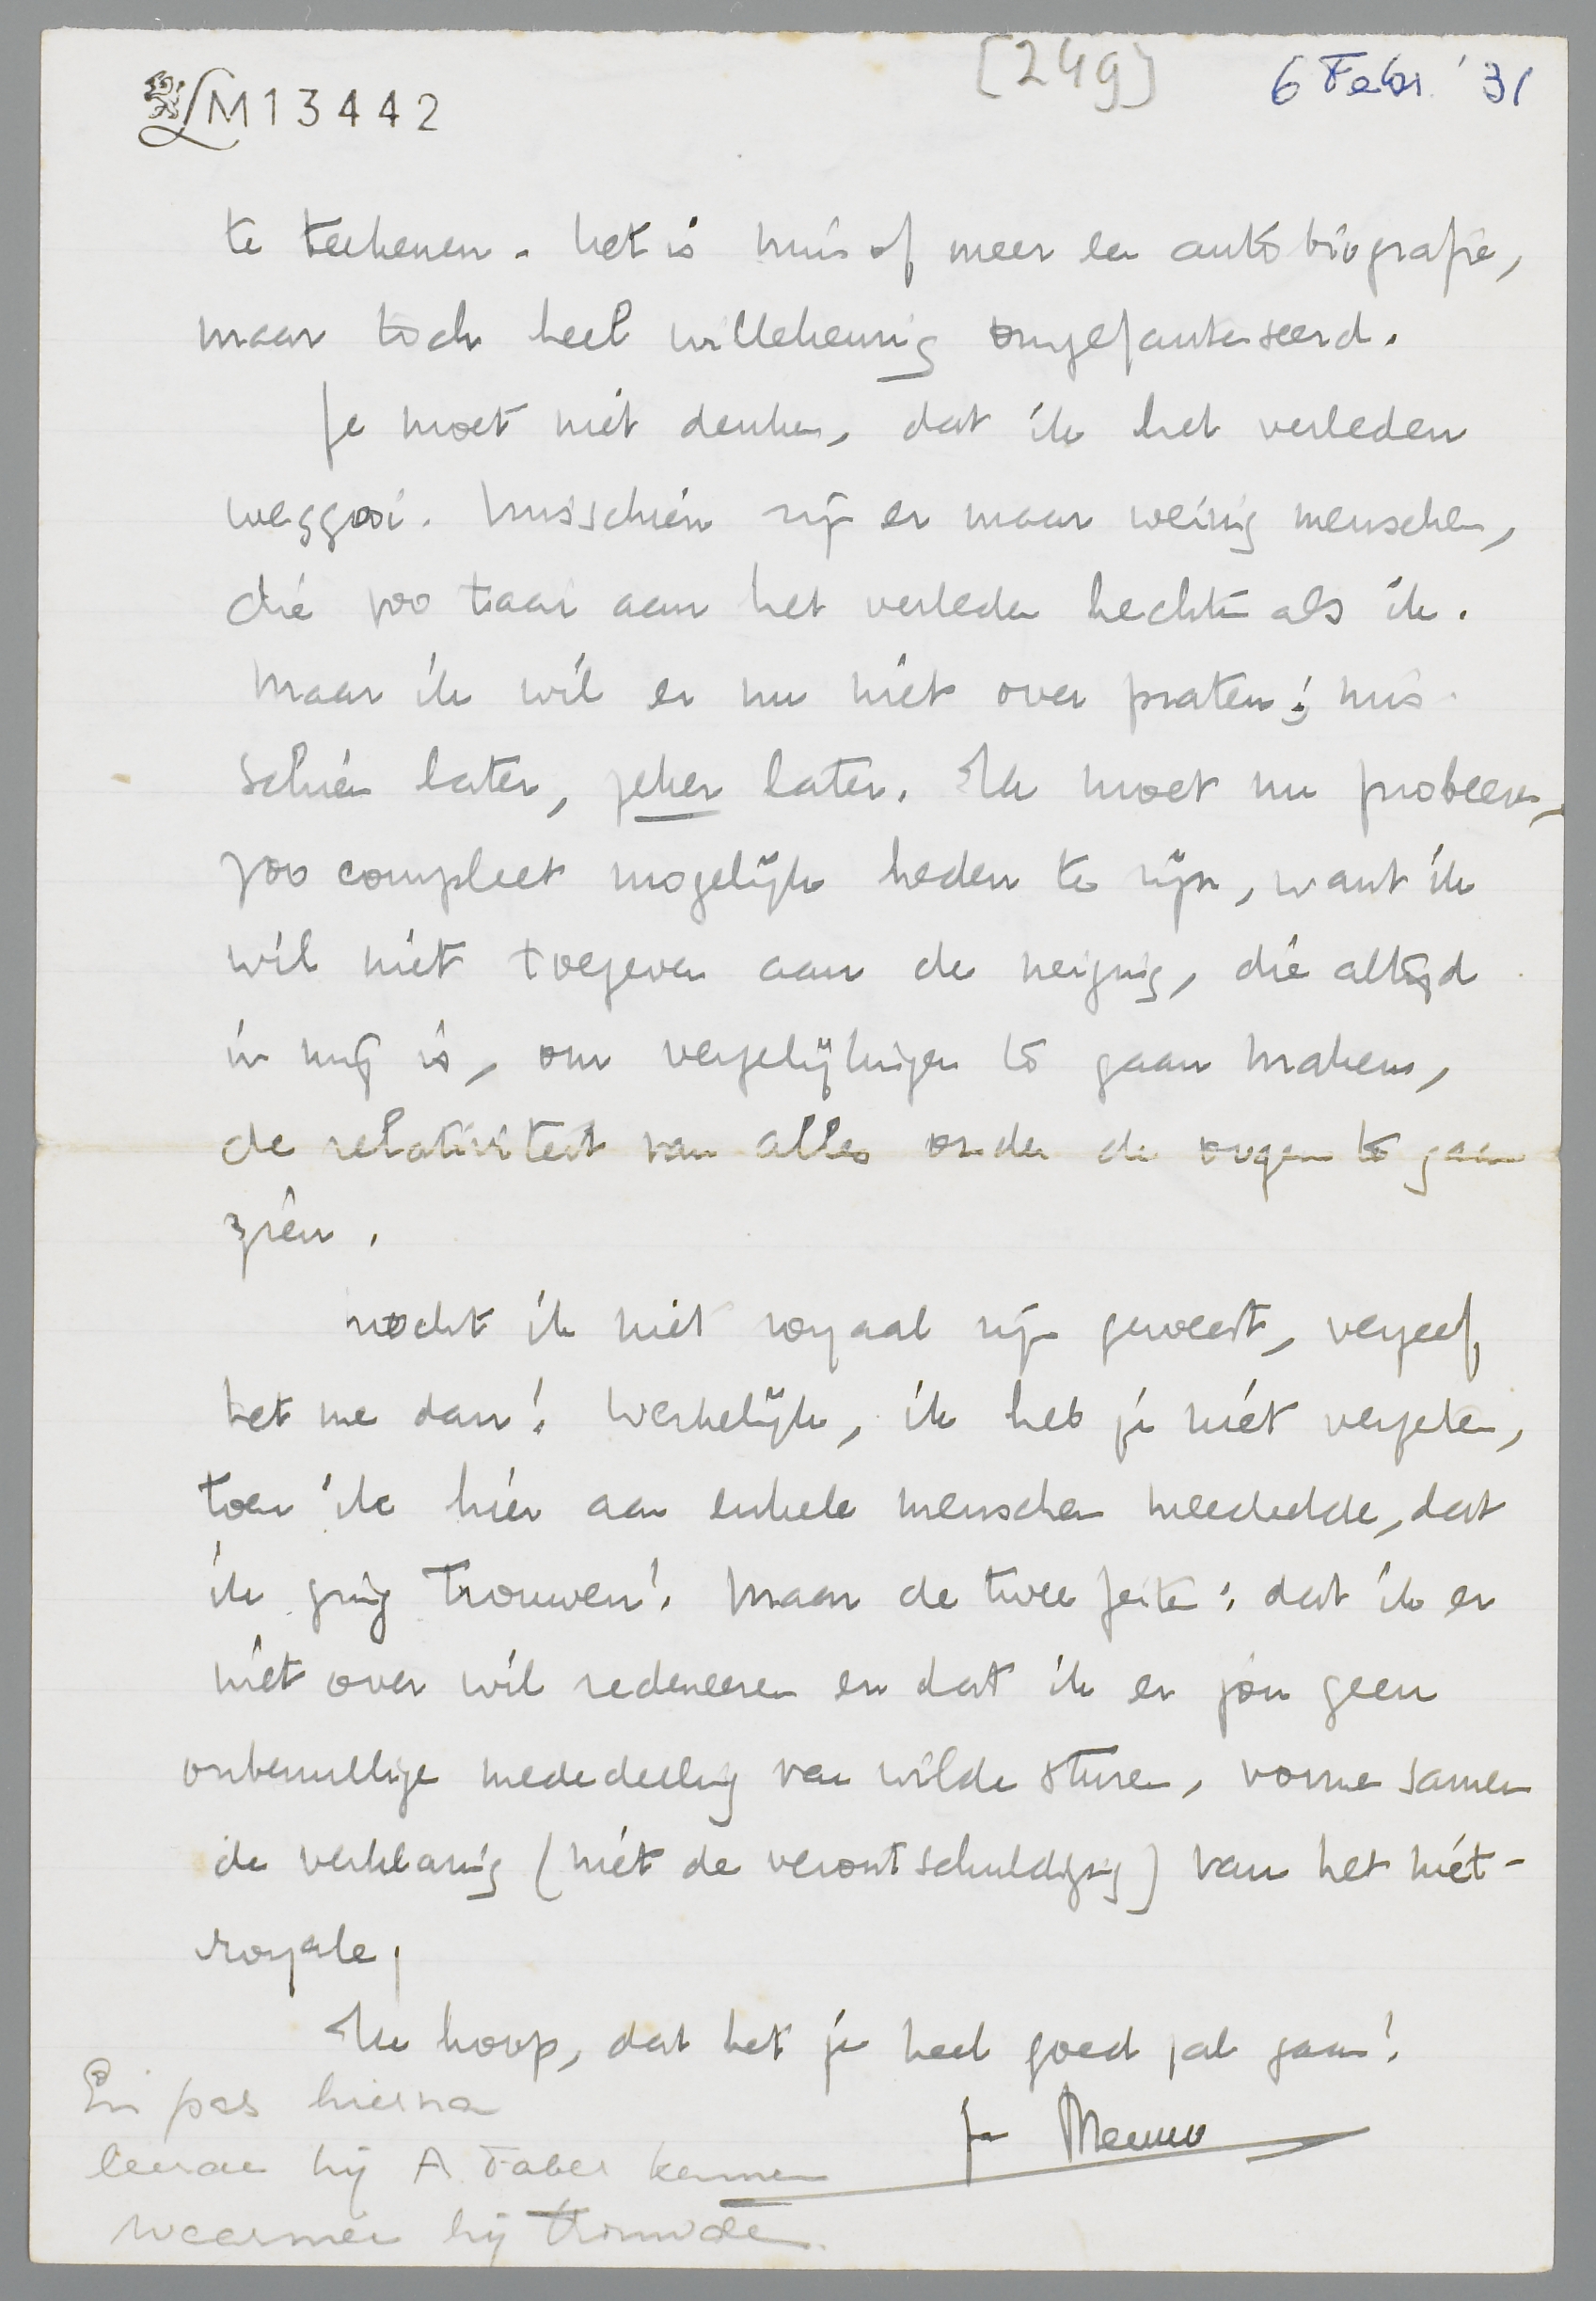 LM13442
[249]
6 Febr. '31
te teekenen. het is min of meer een autobiografie,
maar toch heel willekeurig omgefantaseerd.
Je moet niet denken, dat ik het verleden
weggooi. Misschien zijn er maar weinig menschen,
die zoo taai aan het verleden hechten als ik.
Maar ik wil er nu niet over praten; mis-
schien later, zeker later. Ik moet nu probeeren,
zoo compleet mogelijk heden te zijn, want ik
wil niet toegeven aan de neiging, die altijd
in mij is, om vergelijkingen te gaan maken,
de relativiteit van alles onder de oogen te gaan
zien.
Mocht ik niet royaal zijn geweest, vergeef
het me dan! Werkelijk, ik heb je niét vergeten,
toen ik hier aan enkele menschen meedeelde, dat
ik ging trouwen! Maar de twee feiten: dat ik er
niet over wil redeneeren en dat ik er jou geen
onbenullige mededeeling van wilde sturen, vormen samen
de verklaring (niét de verontschuldiging) van het niét-
royale.
Ik hoop, dat het je heel goed zal gaan!
je Menno
En pas hierna
leerde hij A. Faber kennen
waarmee hij trouwde.